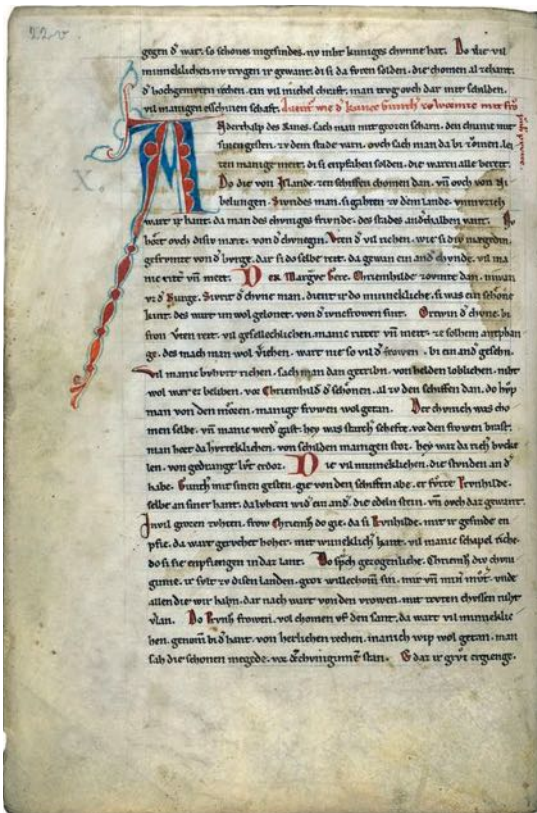 22v
gegen d' wær. so schones ingesindes. nv niht kuniges chvnne hat. Do die vil
minneklichen nv trvgen ir gewant. di si da fvren solden. die chomen al zehant.
d' hochgemvten rechen. ein vil michel chraft. man trvg ovch dar mit schilden.
vil manigen esschinen schaft. Auent wie d' kunec
Anderthalp des Rines. sach man mit grozen scharn. den chunic mit
sinen gesten. zv dem stade varn. ovch sach man da bi zovmen. lei
ten manige meit. di si enpfahen solden. die waren alle bereit.
X.
Do die von Islande. zen schiffen chomen dan. vn ovch von Ni
belungen. Sivrides man. si gahten zv dem lande. vnmvzich
wart ir hant. da man des chvniges frivnde. des stades anderhalben vant. N
hort ovch disiv mære. von d' chvnegin. Vten d' vil richen. wie si div magedin.
gefrumte von d' bvrge. dar si do selbe reit. da gewan ein and' chvnde. vil ma
nic riter vn meit. Der Margve Gere. Chriemhilde zovmte dan. niwan
vz d' Burge. Sivrit d' chvne man. dient ir do minnekliche. si was ein schone
kint. des wart im wol gelonet. von d' ivncfrowen sint. Ortwin d' chvne. bi
fron Vten reit. vil gesellechlichen. manic riter vn meit. ze solhem antphan
ge. des mach man wol iehen. wart nie so vil d' frowen. bi ein and' gesehn.
Vil manic bvhvrt richen. sach man dan getribn. von helden loblichen. niht
wol wær ez beliben. vor Chriemhild d' schonen. al zv den schiffen dan. do hvp
man von den mœren. manige frowen wol getan. Der chvnich was cho
men selbe. vn manic werd' gast. hey waz starch' schefte. vor den frowen brast.
man hort da hvrteklichen. von schilden manigen stoz. hey waz da rich' bvcke
len. von gedrange lvte erdoz. Die vil minneklichen. die stvnden an d'
habe. Gunth' mit sinen gesten. gie von den schiffen abe. er fvrte Prvnhilde.
selbe an siner hant. da lvhten wid' ein and'. die edeln stein. vn ovch daz gewant.
In vil grozen zvhten. frow Chriemh' do gie. da si Prvnhilde. mit ir gesinde en
pfie. da wart gervchet hoher. mit wunneklich' hant. vil manic schapel riche.
do si sie enpfiengen in daz lant. Do sp'ch gezogenliche. Chriemh' div chvni
ginne. ir svlt zv disen landen. groz willechomen sin. mir vn min mvt'. vnde
allen die wir habn. dar nach wart von den vrowen. mit trvten chvssen niht
vlan. Do Prvnh' frowen. vol chomen vf den sant. da wart vil minneklic
hen. genom bi d' hant. von herlichen rechen. manich wip wol getan. man
sah die schonen megede. vor d' chvniginne stan. E daz ir grvz ergienge.